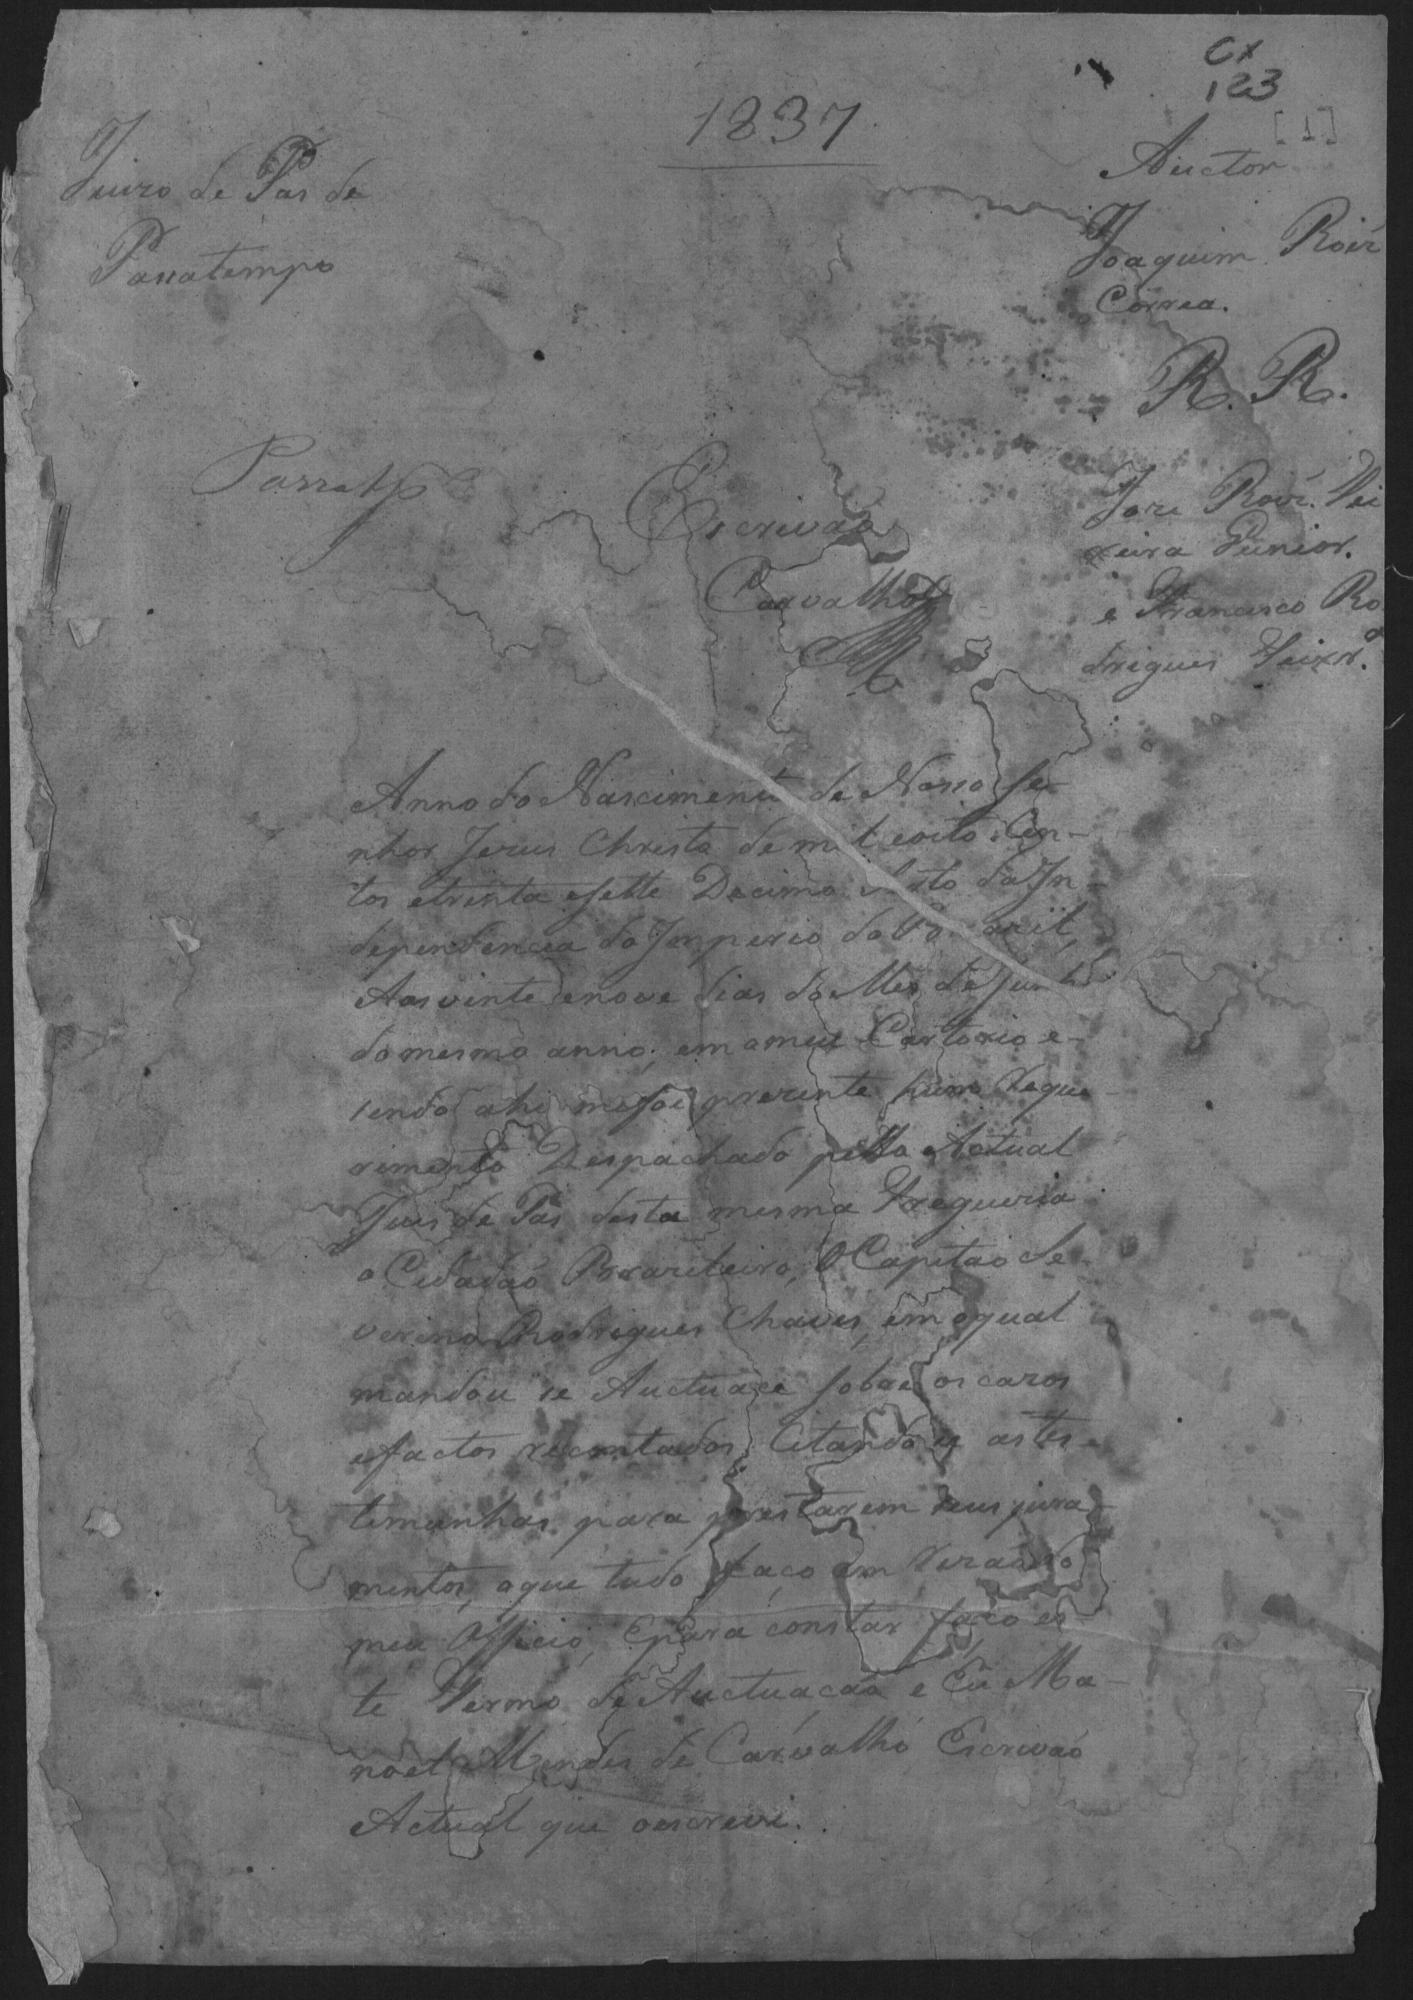 Cx
123
1837
[1]
Juizo de Pas de
Passatempo
Auctor
Joaquim Roiz
Correa.
R. R.
Escrivaõ
Carvalho
Joze Rodr. Tei
xeira Junior.
e Francisco Ro
drigues Teixr.ª
Anno do Nascimento de Nosso Se-
nhor Jesus Christo de mil eoito Cen-
tos etrinta esette Decimo Sexto da In
dependencia do Imperio do Brazil,
Aos vinte enove dias do Mes de Junho
do mesmo anno, em o meu Cartorio e-
sendo ahi me foi prezente hum Reque-
rimento Despachado pello Actual
Juis de Pas desta mesma Fregueria
o Cidadaõ Brazileiro, O Capitaõ Se
verino Rodrigues Chaves, em oqual
mandou se Auctuace sobre os cazos
efactos recontados, Citando se astes-
timunhas para prestarem seus jura-
mentos, oque tudo faço em Virtude do
meu Officio, Epara constar faço es-
te Termo de Auctuaçaõ e Eu Ma-
noel Mendes de Carvalho, Escrivaõ
Actual que oescrevi.